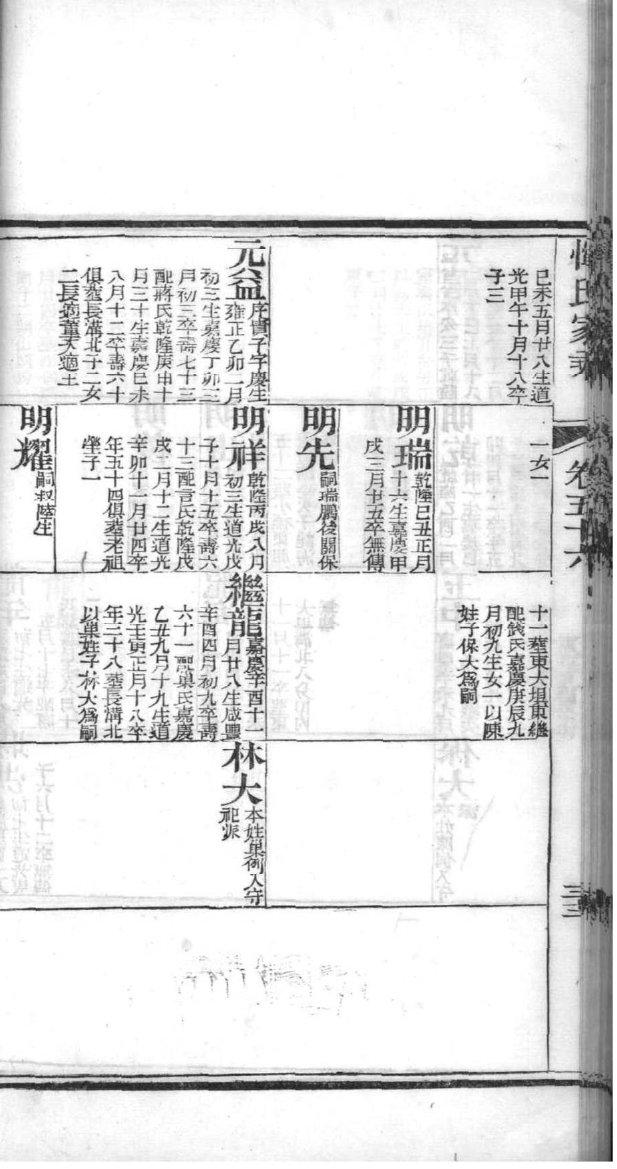 惲氏家乘
卷五十六
三三
己未五月廿八生道
光甲午十月十八卒
子三
元益
序實子字慶生
雍正乙卯二月
初三生嘉慶丁卯三
月初三卒壽七十三
配蔣氏乾隆庚申十
月三十生嘉慶己未
八月十二卒壽六十
俱葬長溝北子二女
二長適董次適王
一女一
明瑞
乾隆己丑正月
十六生嘉慶甲
戌三月廿五卒無傳
明先
嗣瑞鵬後關保
明祥
乾隆丙戌八月
初三生道光戊
子十月十五卒壽六
十三配言氏乾隆戊
戌二月十二生道光
辛卯十一月廿四卒
年五十四俱葬老祖
塋子一
明耀
嗣叔陸生
十一葬東大坦東繼
配錢氏嘉慶庚辰九
月初九生女一以陳
姓子保大爲嗣
繼龍
嘉慶辛酉十一
月廿八生咸豐
辛酉四月初九卒壽
六十一配巢氏嘉慶
乙丑九月十九生道
光壬寅正月十八卒
年三十八葬長溝北
以巢姓子林大爲嗣
林大
本姓巢例入守
祀派